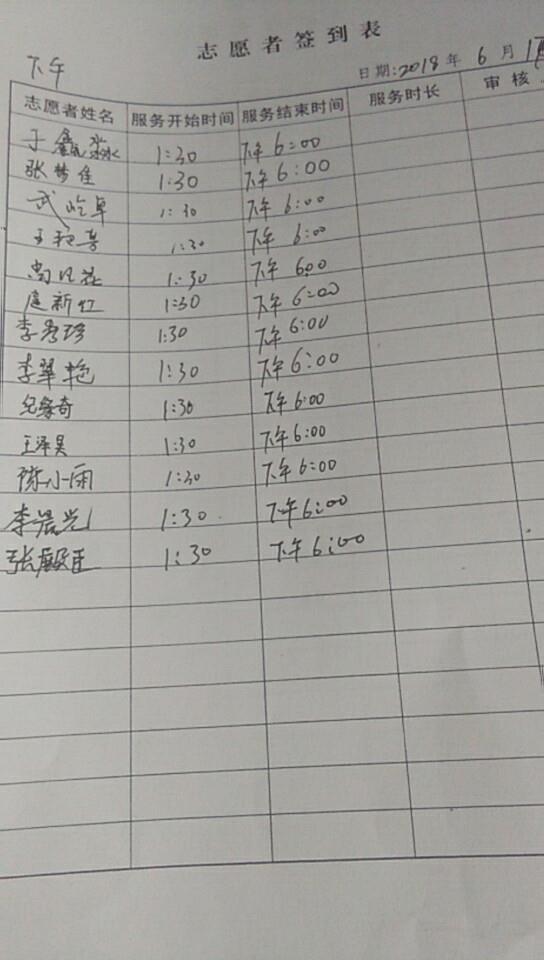 志愿者签到表
下午
日期:2018年6月1
志愿者姓名 服务开始时间 服务结束时间 服务时长 审核
于鑫淼 1:30 下午6:00
张梦佳 1:30 下午6:00
武屹卓 1:30 下午6:00
1:30 下午6:00
1:30 下午600
庞新红 1:30 下午6:00
李秀珍 1:30 下午6:00
李翠艳 1:30 下午6:00
纪缘奇 1:30 下午6:00
王泽昊 1:30 下午6:00
陈小雨 1:30 下午6:00
李晨光 1:30 下午6:00
张殿臣 1:30 下午6:00